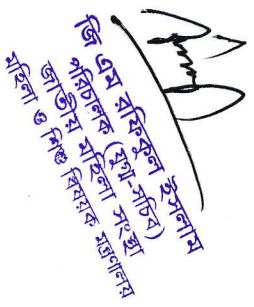 জি এম রফিকুল ইসলাম
পরিচালক (যুগ্ম-সচিব)
জাতীয় মহিলা সংস্থা
মহিলা ও শিশু বিষয়ক মন্ত্রণালয়